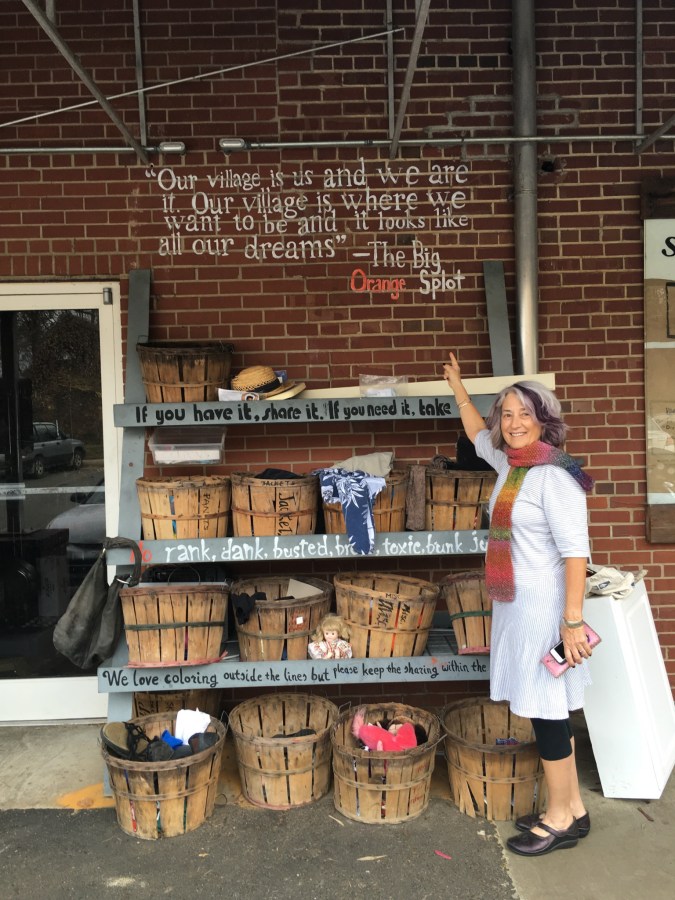 "Our village is us and we are
it. Our village is where we
want to be and it looks like
all our dreams" —The Big
Orange Splot
If you have it, share it. If you need it, take
rank, dank, busted, toxic, bunk
We love coloring outside the lines but please keep the sharing within the
PANTS
JACKET
MISC